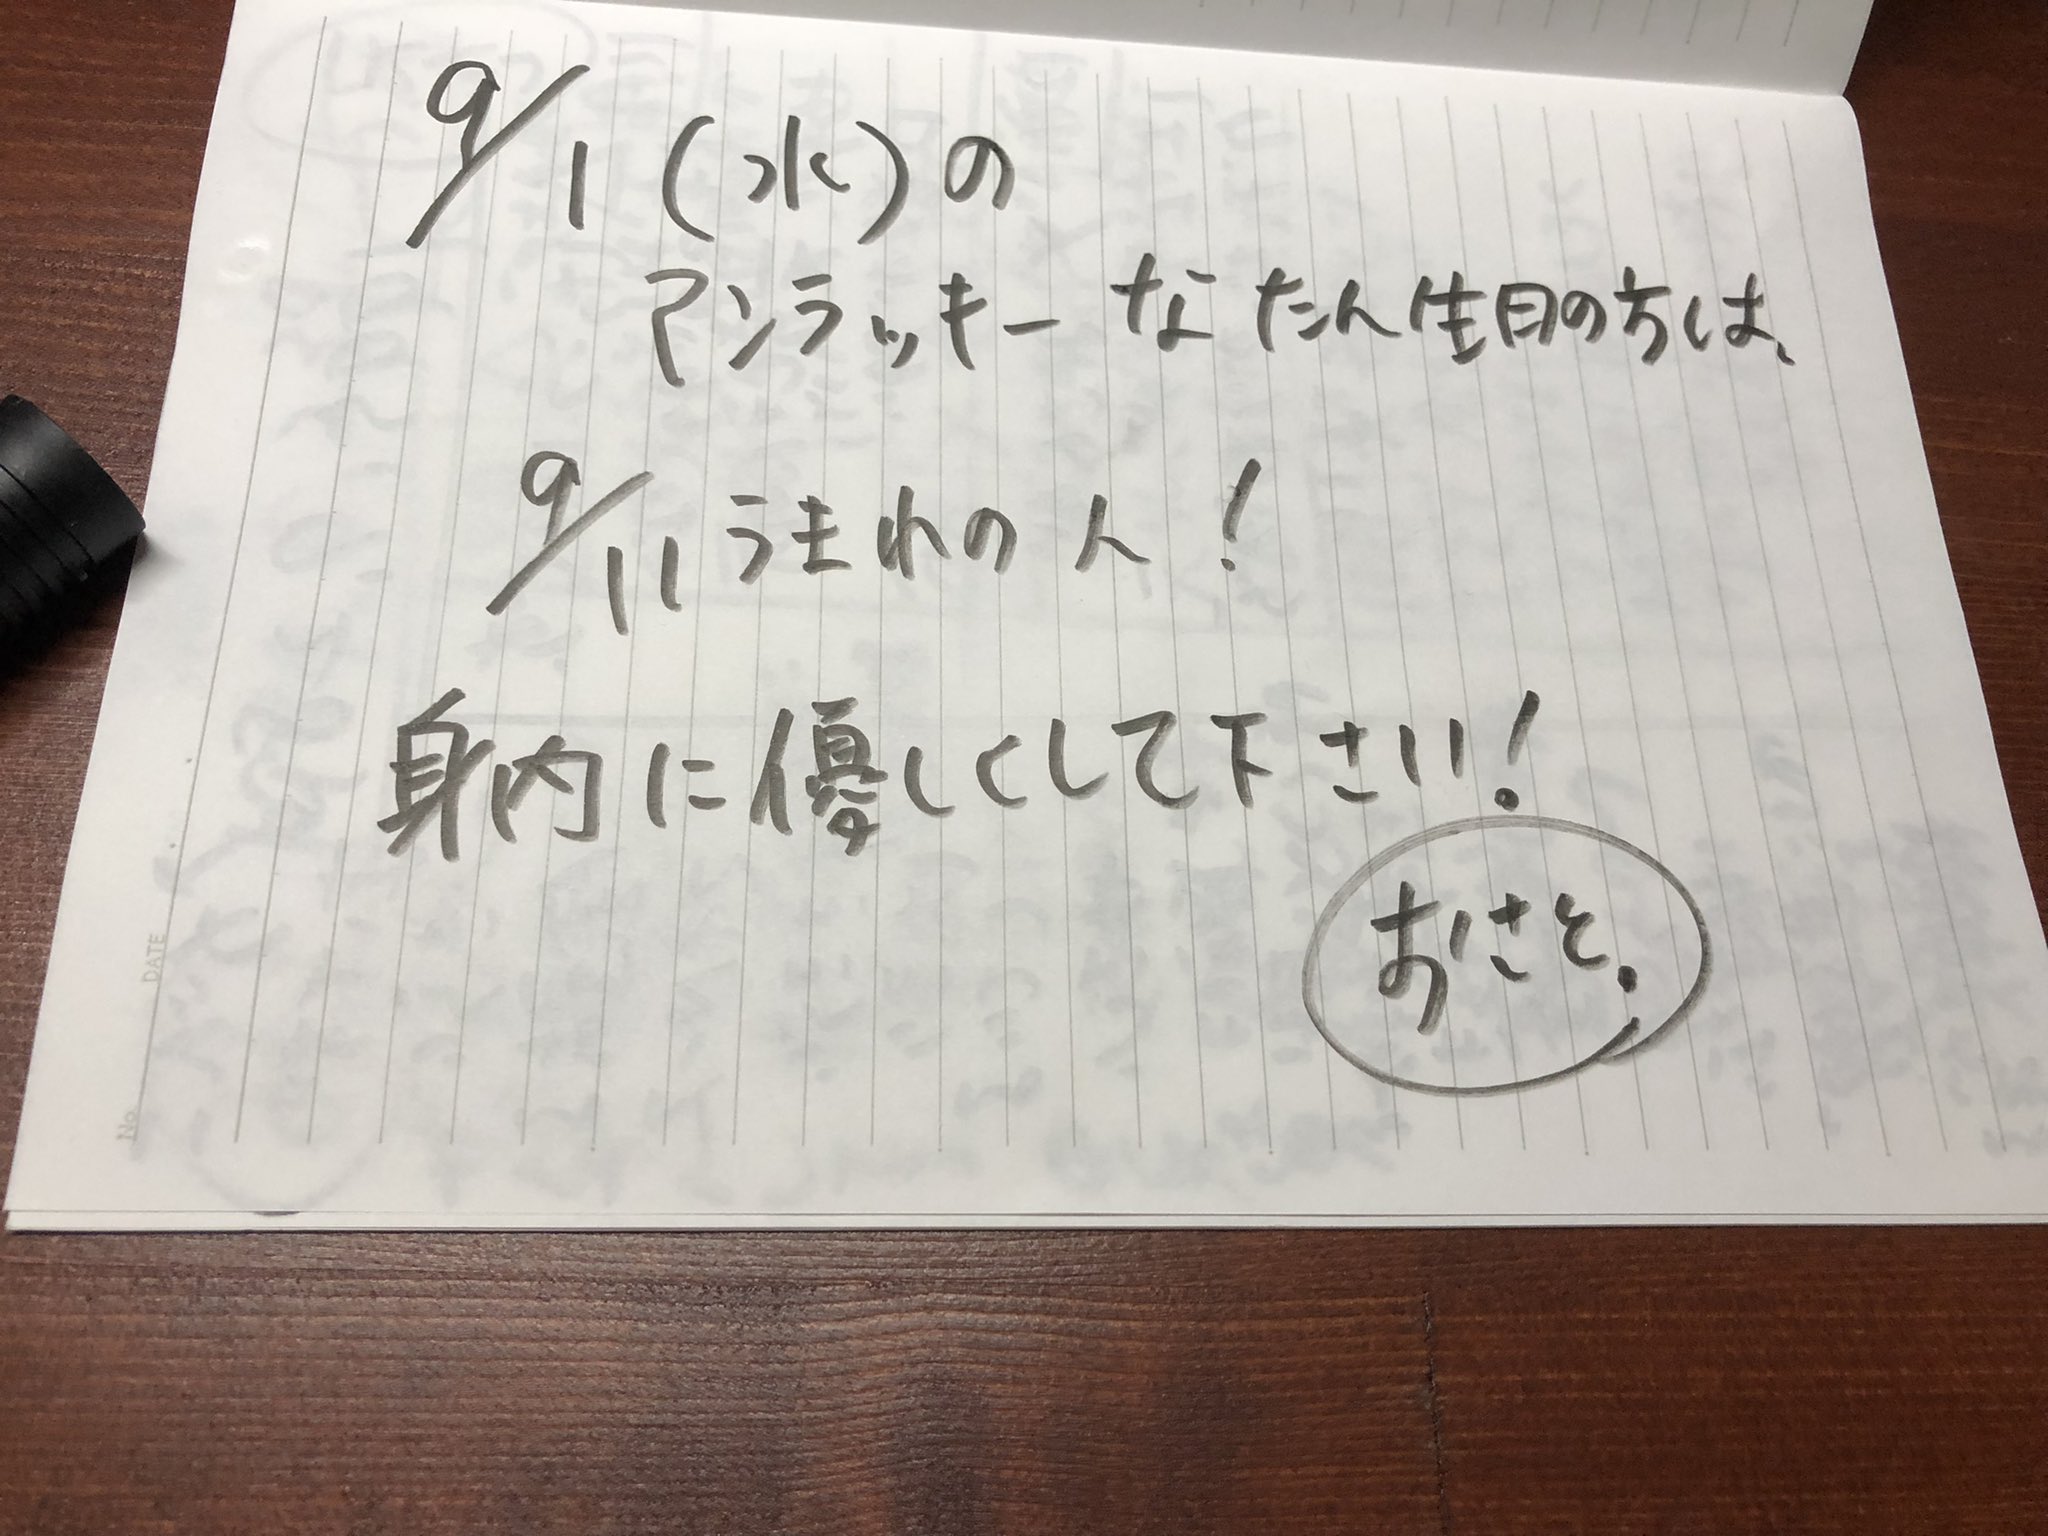 9/1(水)の
アンラッキーなたん生日の方は、
9/11うまれの人!
身内に優しくして下さい!
おさそ.
DATE
No.